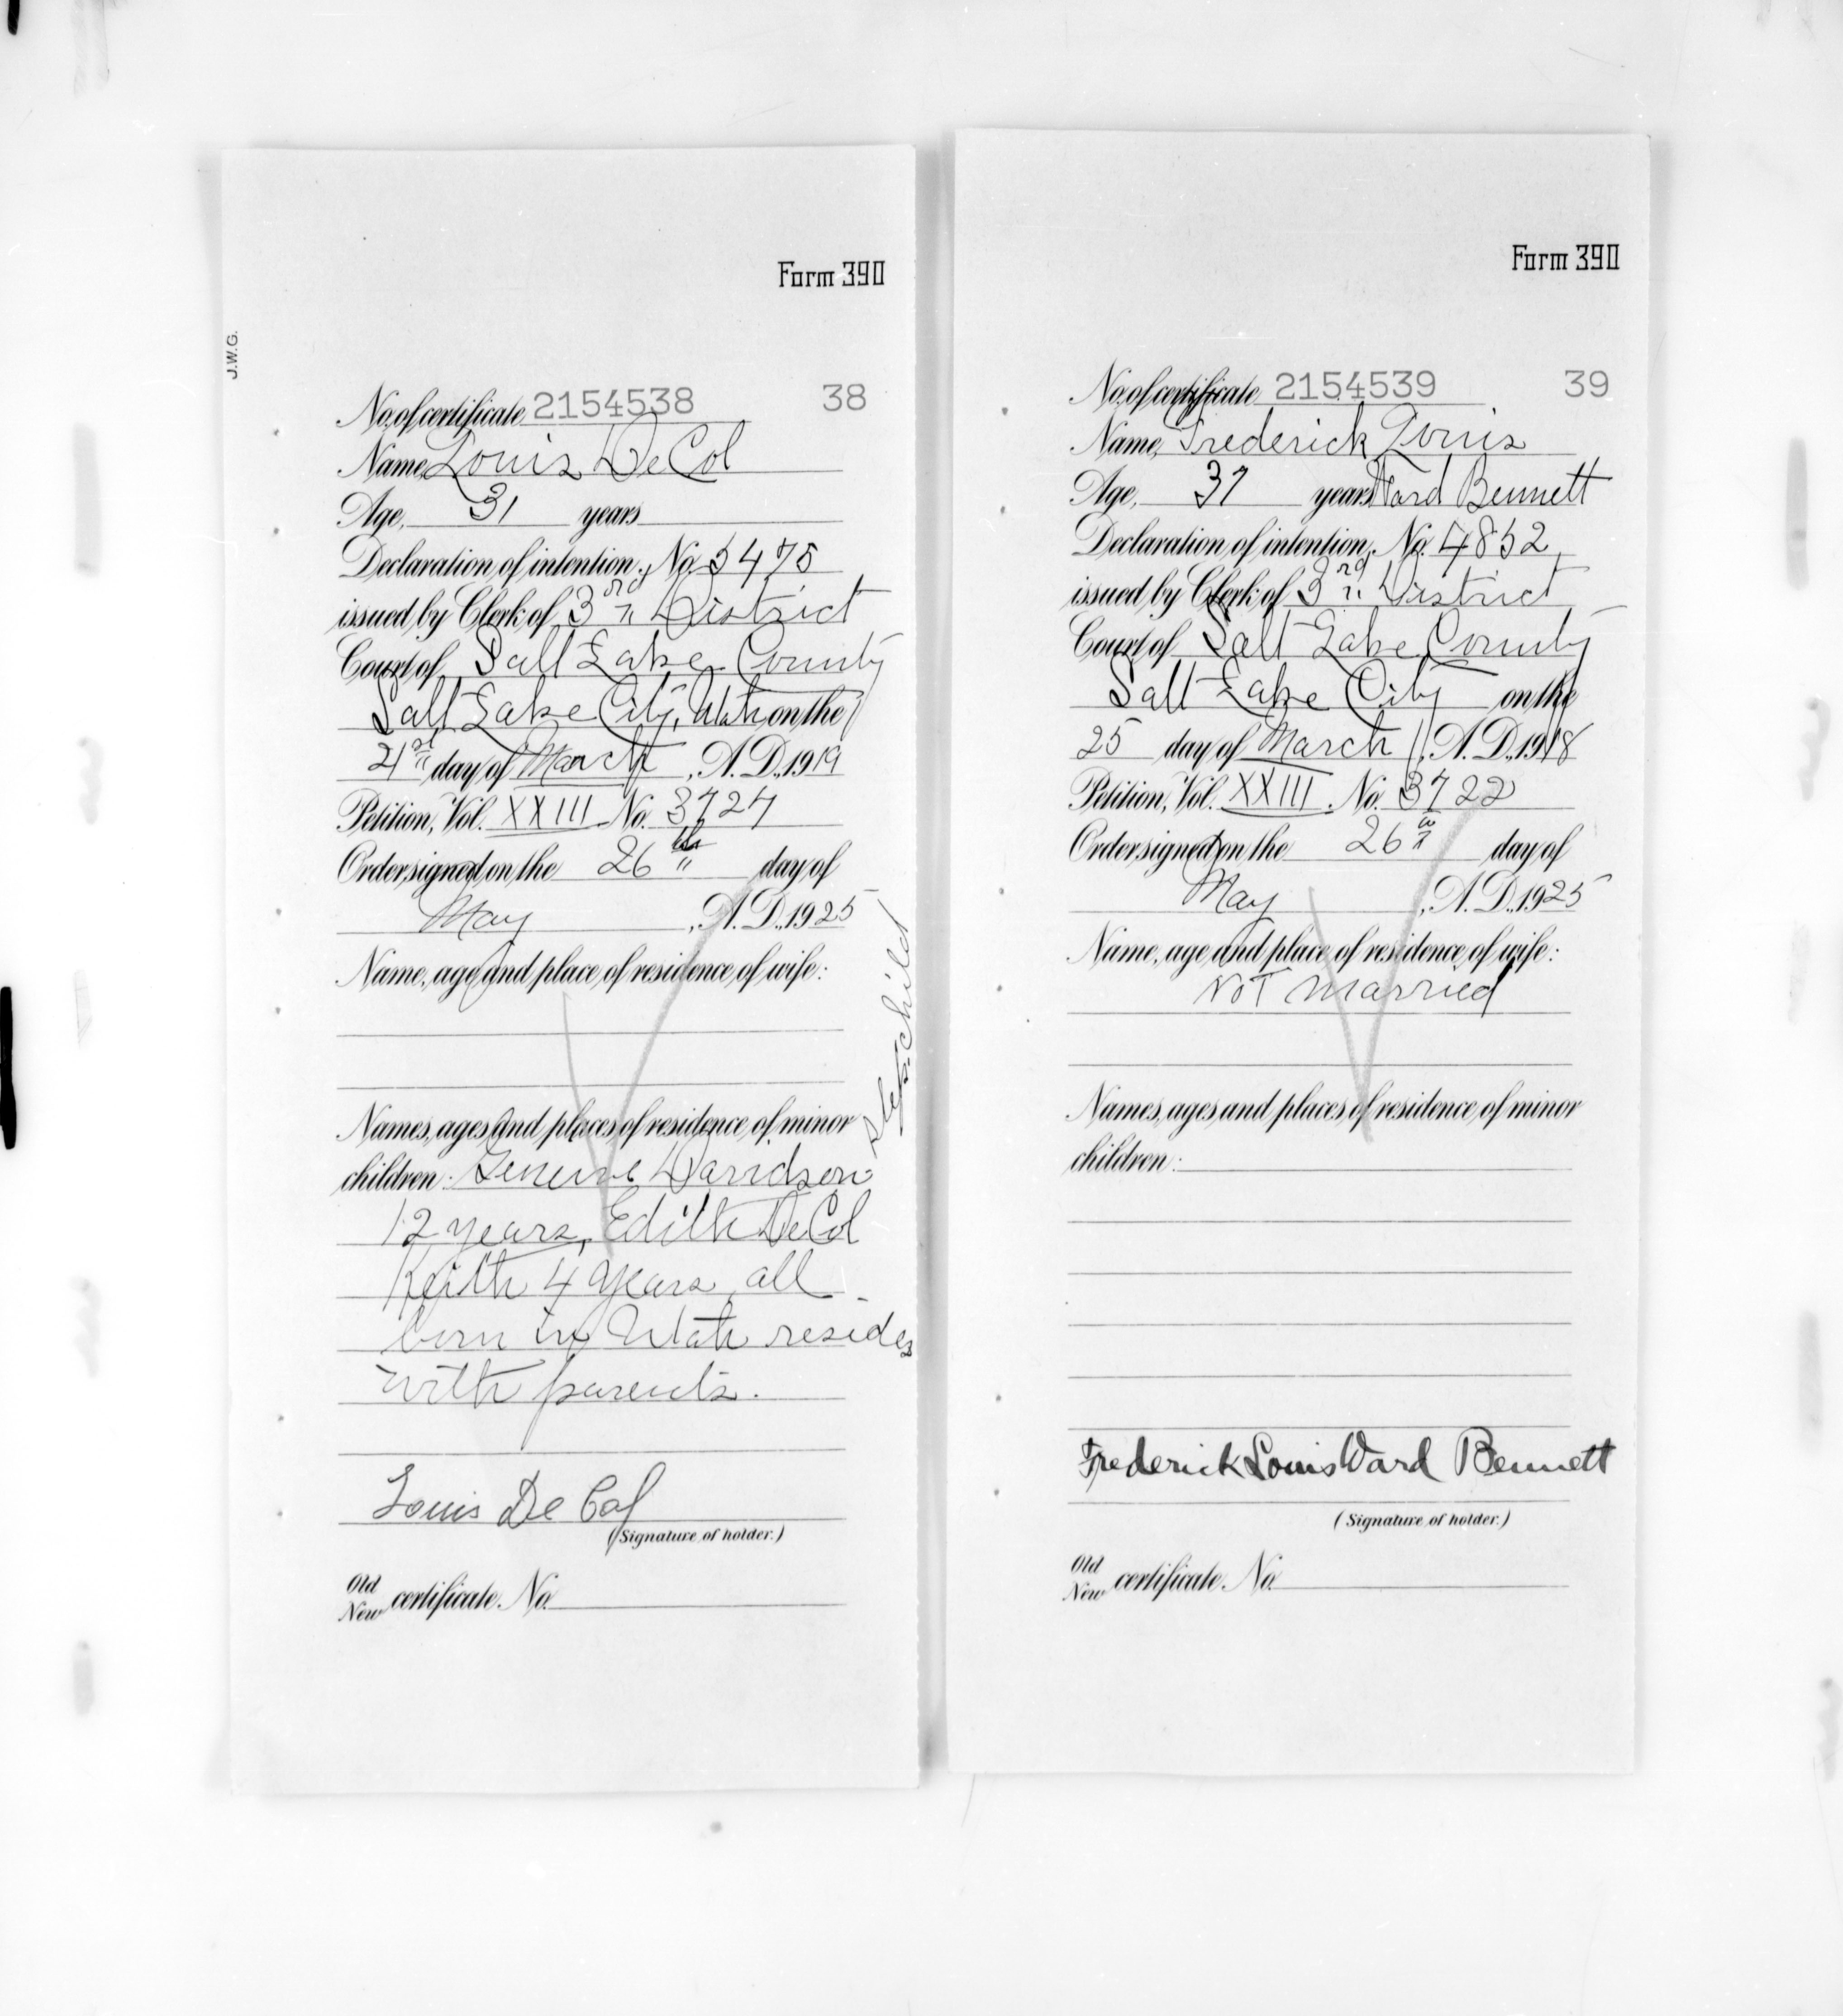 Form 390
J.W.G.
No. of certificate 2154538 38
Name, Louis DeCol
Age, 31 years
Declaration of intention, No. 5475
issued by Clerk of 3rd District
Court of Salt Lake County
Salt Lake City, Utah on the
21st day of March, A. D., 1919
Petition, Vol. XXIII No. 3727
Order signed on the 26th day of
May, A. D., 1925
Name, age and place of residence of wife:
Names, ages and places of residence of minor
stepchild
children: Davidson
12 years, Edith DeCol
Keith 4 years all
born in Utah resides
with parents.
Louis De Col
(Signature of holder.)
Old
New certificate No.
Form 390
No. of certificate 2154539 39
Name, Frederick Louis
Age, 37 years Ward Bennett
Declaration of intention, No. 4852
issued by Clerk of 3rd District
Court of Salt Lake County
Salt Lake City on the
25 day of March, A. D., 1918
Petition, Vol. XXIII. No. 3722
Order signed on the 26th day of
May, A. D., 1925
Name, age and place of residence of wife:
Not Married
Names, ages and places of residence of minor
children:
Frederick Louis Ward Bennett
(Signature of holder.)
Old
New certificate No.